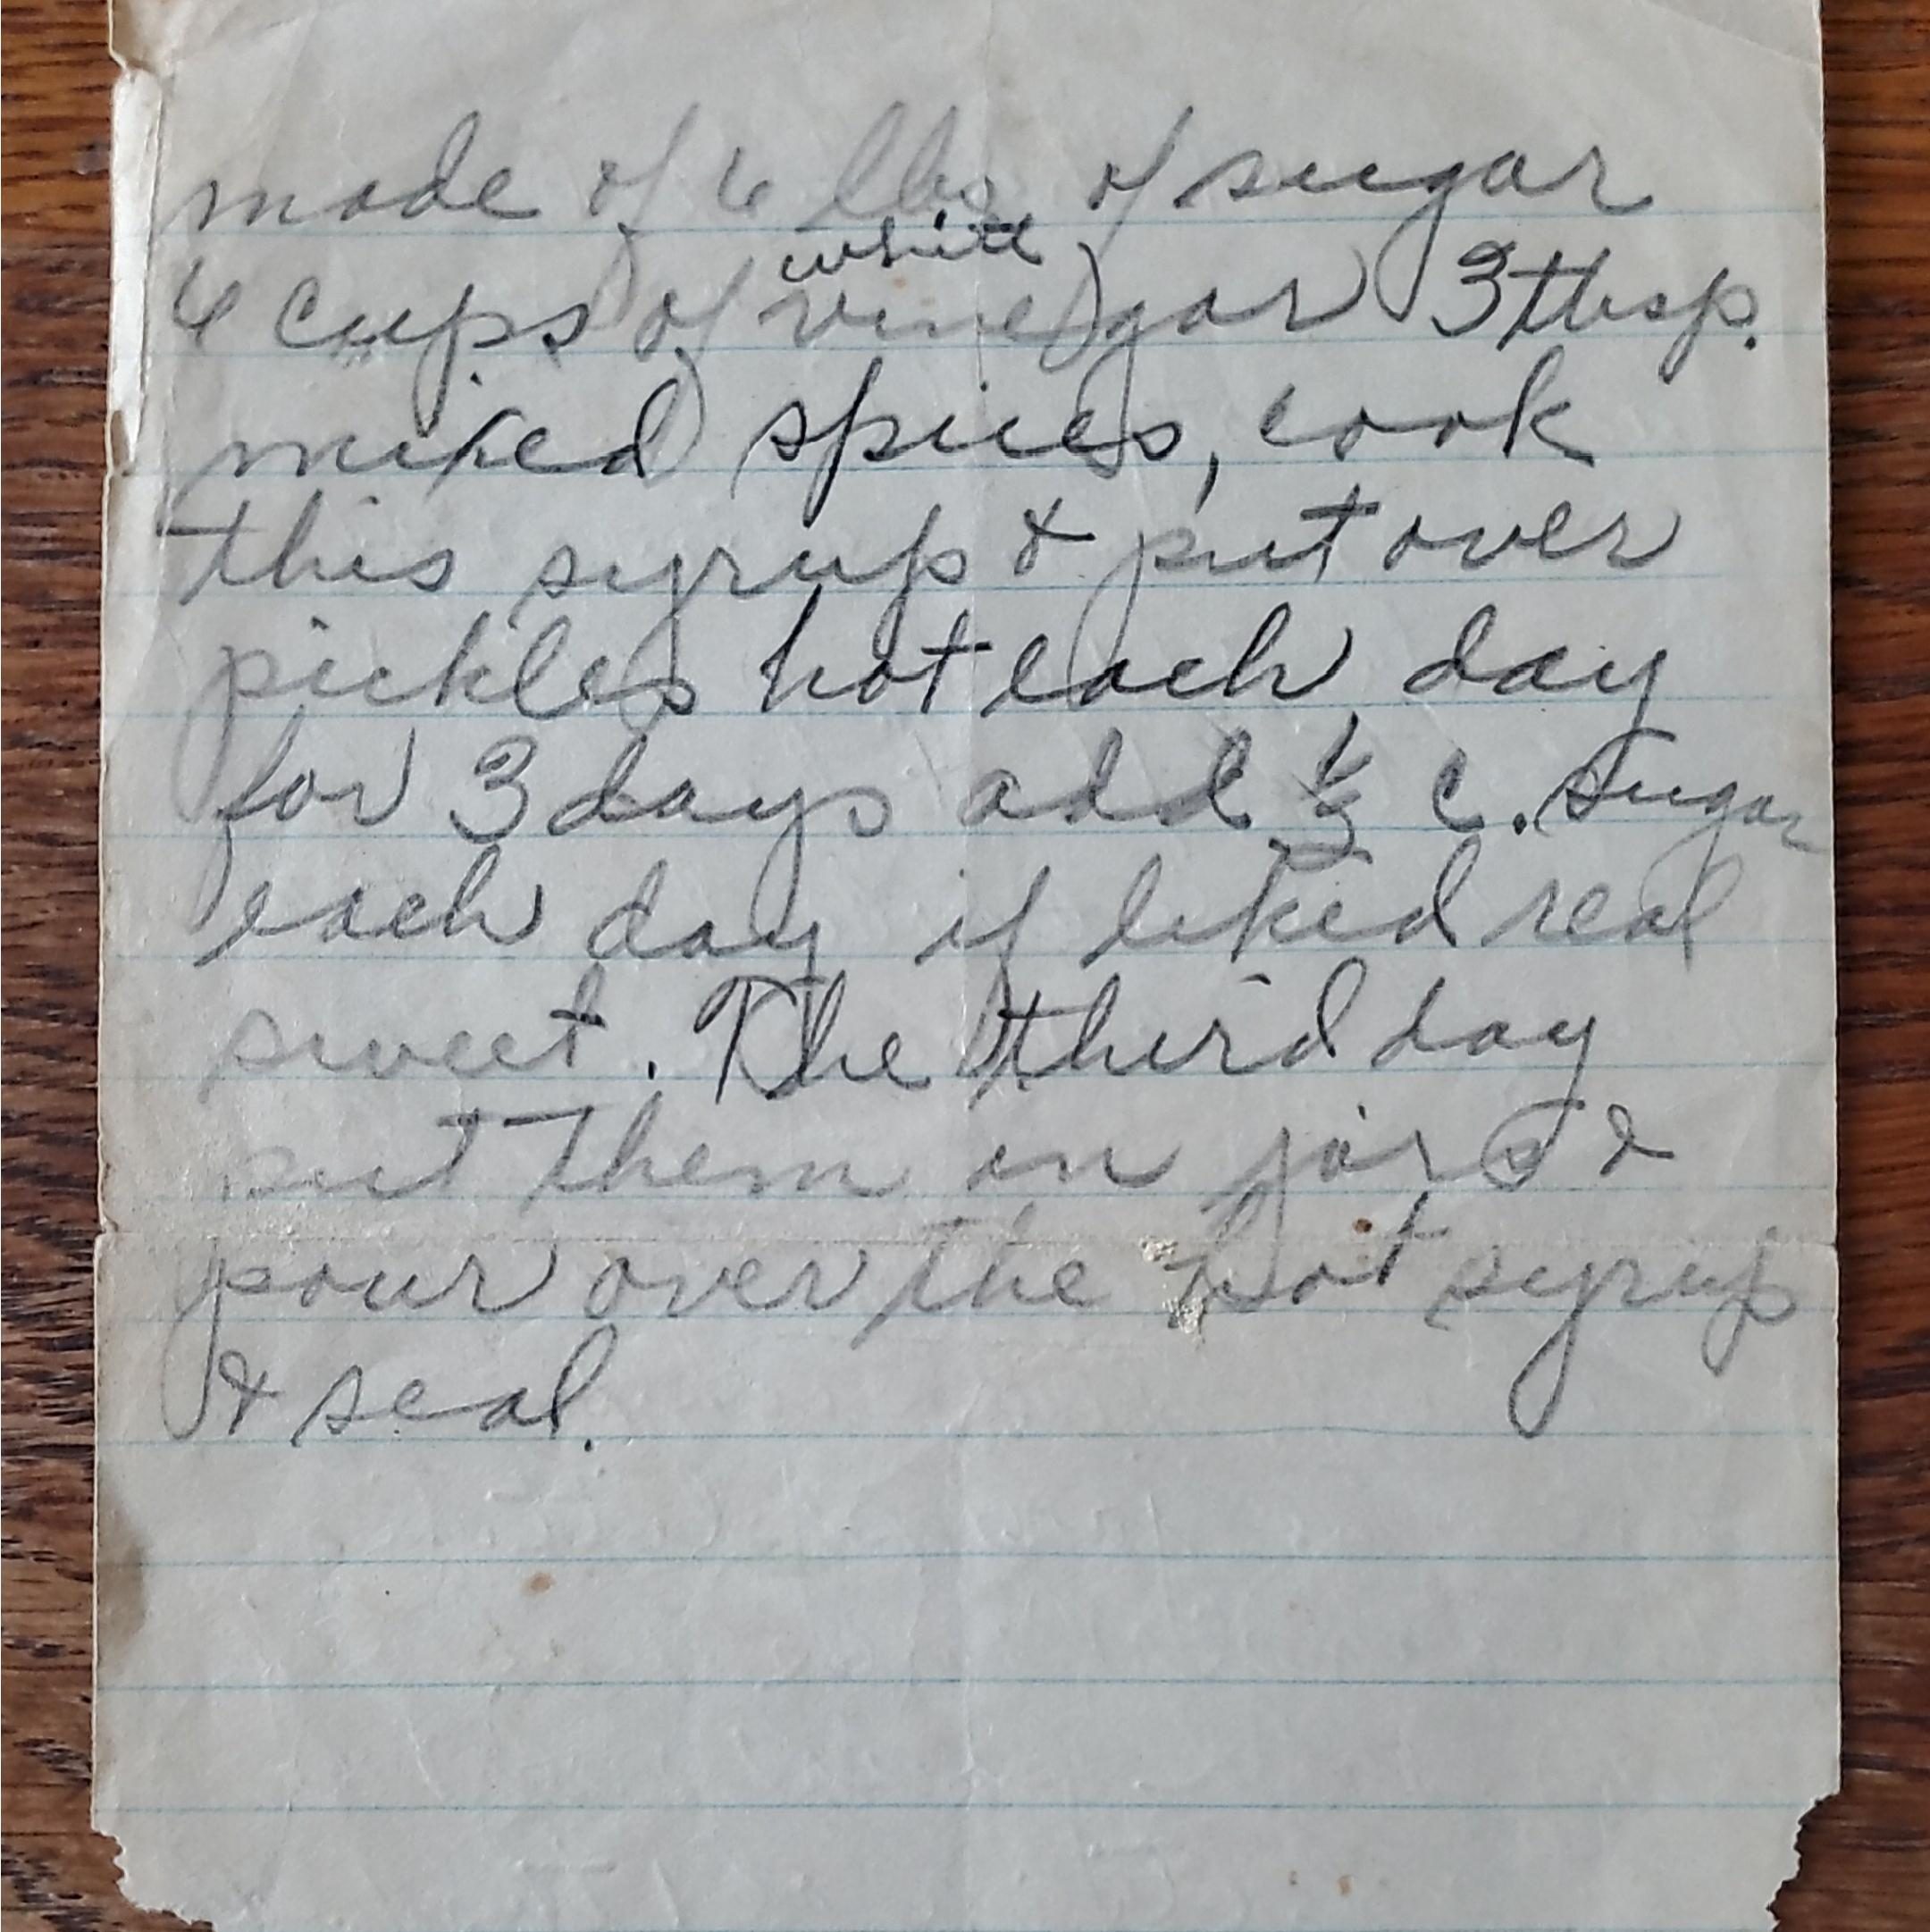 made of 6 lbs of sugar
6 cups of white vinegar 3 tbsp.
mixed spices, cook
this syrup & put over
pickles hot each day
for 3 days add ½ c. sugar
each day if liked real
sweet. The third day
put them in jars &
pour over the hot syrup
& seal.